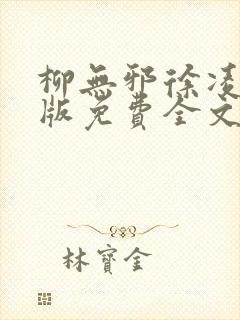 柳無邪徐凌
版免費全文
林寶金